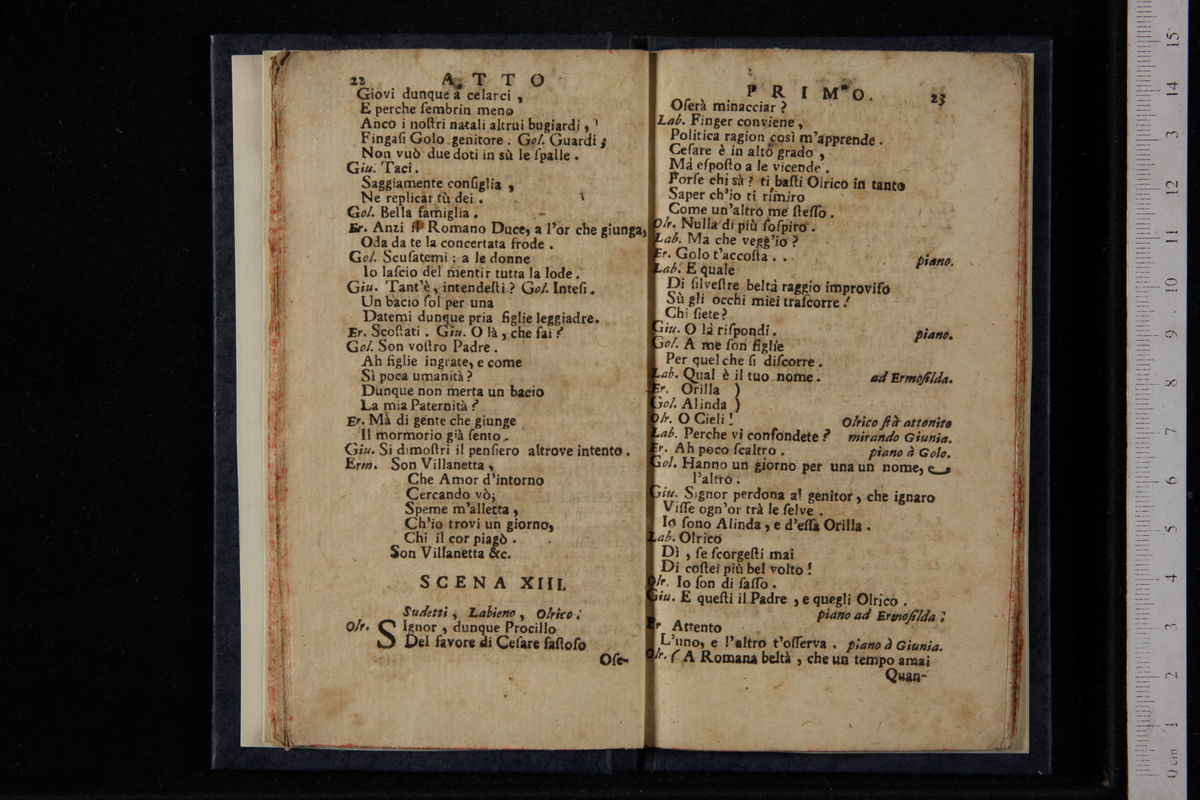 22 ATTO
Giovi dunque a celarci ,
E perche ſembrin meno
Anco i noſtri natali altrui bugiardi ,
Fingaſi Golo genitore . Gol. Guardi ;
Non vuò due doti in sù le ſpalle .
Giu. Taci.
Saggiamente conſiglia ,
Ne replicar tù dei .
Gol. Bella famiglia .
Er. Anzi il Romano Duce, a l'or che giunga,
Oda da te la concertata frode .
Gol. Scuſatemi : a le donne
Io laſcio del mentir tutta la lode .
Giu. Tant'è , intendeſti ? Gol. Inteſi .
Un bacio ſol per una
Datemi dunque pria figlie leggiadre.
Er. Scoſtati . Giu. O là , che fai ?
Gol. Son voſtro Padre .
Ah figlie ingrate, e come
Sì poca umanità ?
Dunque non merta un bacio
La mia Paternità ?
Er. Mà di gente che giunge
Il mormorio già ſento .
Giu. Si dimoſtri il penſiero altrove intento .
Erm. Son Villanetta ,
Che Amor d'intorno
Cercando vò;
Speme m'alletta ,
Ch'io trovi un giorno,
Chi il cor piagò .
Son Villanetta &c.
SCENA XIII.
Sudetti , Labieno , Olrico .
Olr. SIgnor , dunque Procillo
Del favore di Ceſare faſtoſo
Oſe-
PRIMO. 23
Oſerà minacciar ?
Lab. Finger conviene ,
Politica ragion così m'apprende .
Ceſare è in alto grado ,
Mà eſpoſto a le vicende .
Forſe chi sà ? ti baſti Olrico in tanto
Saper ch'io ti rimiro
Come un'altro me ſteſſo .
Olr. Nulla di più ſoſpiro .
Lab. Ma che vegg'io ?
Er. Golo t'accoſta . . piano.
Lab. E quale
Di ſilveſtre beltà raggio improviſo
Sù gli occhi miei traſcorre !
Chi ſiete ?
Giu. O là riſpondi . piano.
Gol. A me ſon figlie
Per quel che ſi diſcorre .
Lab. Qual è il tuo nome . ad Ermoſilda.
Er. Orilla )
Gol. Alinda )
Olr. O Cieli ! Olrico ſtà attonito
Lab. Perche vi confondete ? mirando Giunia.
Er. Ah poco ſcaltro . piano à Golo.
Gol. Hanno un giorno per una un nome, e
l'altro .
Giu. Signor perdona al genitor , che ignaro
Viſſe ogn'or trà le ſelve .
Io ſono Alinda , e d'eſſa Orilla .
Lab. Olrico
Dì , ſe ſcorgeſti mai
Di coſtei più bel volto !
Olr. Io ſon di ſaſſo .
Giu. E queſti il Padre , e quegli Olrico .
piano ad Ermoſilda .
Er Attento
L'uno, e l'altro t'oſſerva . piano à Giunia.
Olr. ( A Romana beltà , che un tempo amai
Quan-